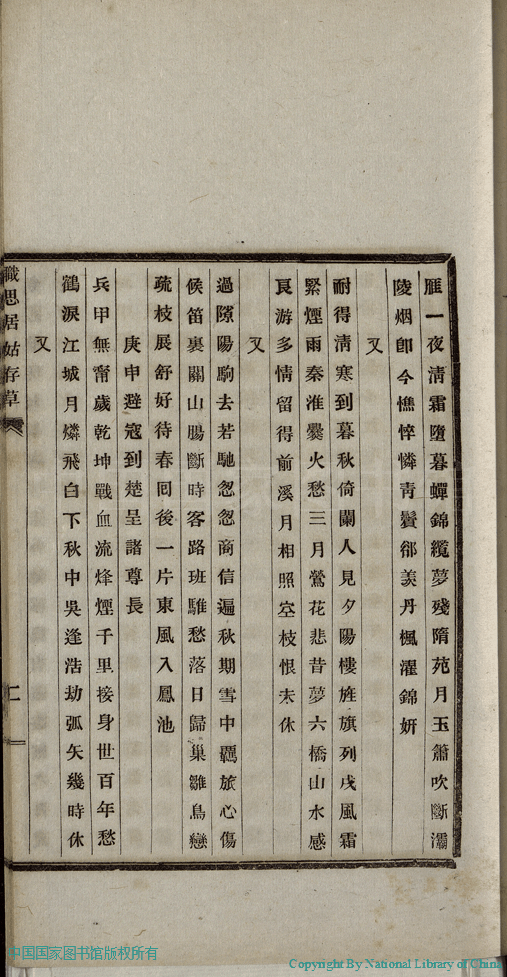 雁一夜淸霜墮暮蟬錦纜夢殘隋苑月玉簫吹斷灞
陵烟卽今憔悴憐靑鬢郤羨丹楓濯錦姸
又
耐得淸寒到暮秋倚闌人見夕陽樓旌旗列戍風霜
緊煙雨秦淮爨火愁三月鶯花悲昔夢六橋山水感
良游多情留得前溪月相照空枝恨未休
又
過隙陽駒去若馳忽忽商信遍秋期雪中羈旅心傷
候笛裏關山腸斷時客路班騅愁落日歸巢雛鳥戀
疏枝展舒好待春囘後一片東風入鳳池
庚申避寇到楚呈諸尊長
兵甲無甯歲乾坤戰血流烽煙千里接身世百年愁
鶴淚江城月燐飛白下秋中吳逢浩劫弧矢幾時休
又
職思居姑存草
二
中国国家图书馆版权所有
Copyright By National Library of China